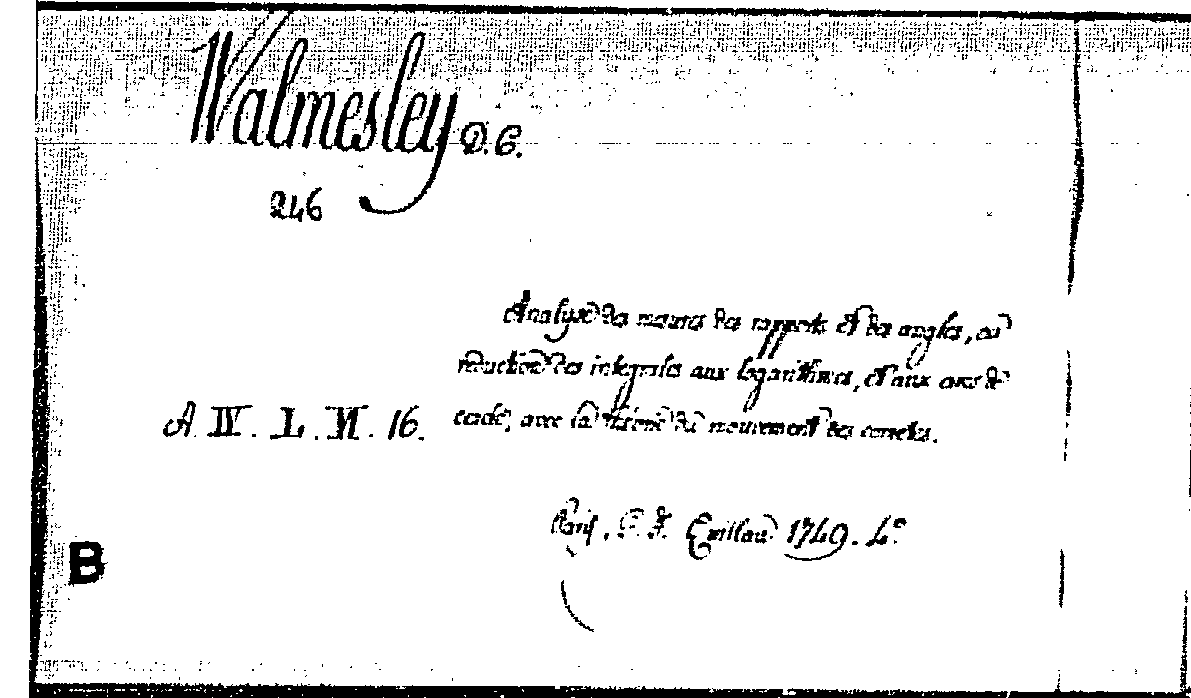 Walmesley D. C.
246
Analyse des mesures des rapports et des angles, ou
réduction des integrales aux logarithmes, et aux arcs de
A. IV. L. VI. 16.
cercle, avec la théorie du mouvement des comètes.
Paris. C. F. Quillau 1749. 4º
B